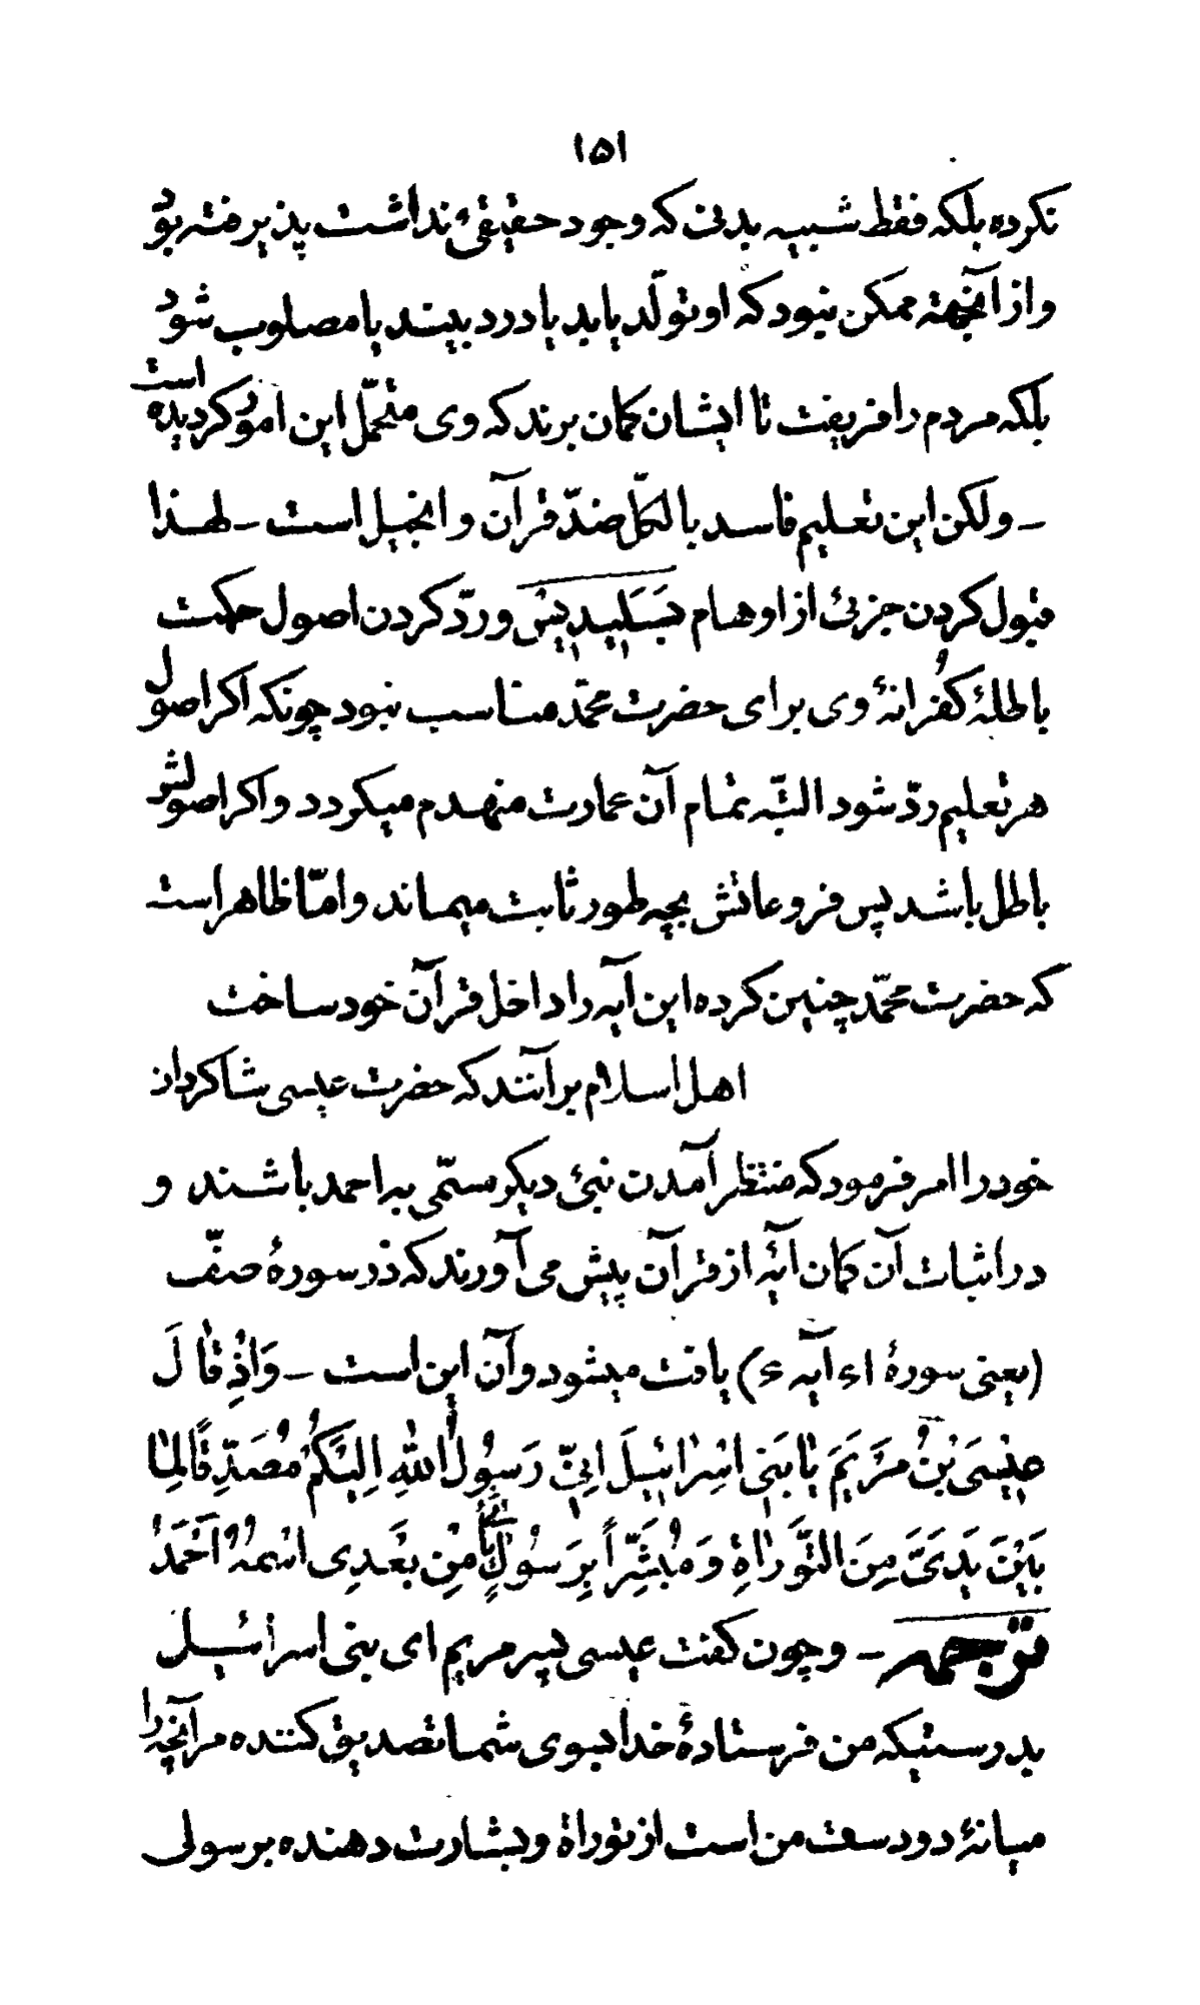 ۱۵۱
نکرده بلکه فقط شبیه بدنی که وجود حقیقیٔ نداشت پذیرفته بود
و از آنجهة ممکن نبود که او تولّد یابد یا درد بیند یا مصلوب شود
بلکه مردم را فریفت تا ایشان کمان برند که وی متحمّل این امور کردیده است
ـ ولکن این تعلیم فاسد بالکلّ ضدّ قرآن و انجیل است ـ لهذا
قبول کردن جزئی از اوهام بَسَلِیدِیسْ و ردّ کردن اصول حکمت
باطلهٔ کُفرانهٔ وی برای حضرت محمّد مناسب نبود چونکه اکر اصول
هر تعلیم ردّ شود البتّه تمام آن عمارت منهدم میکردد و اکر اصولش
باطل باشد پس فروعاتش بچه طور ثابت میماند و امّا ظاهر است
که حضرت محمّد چنین کرده این آیه را داخل قرآن خود ساخت
اهل اسلام برآنند که حضرت عیسی شاکردان
خود را امر فرمود که منتظر آمدن نبیٔ دیکر مسمّی به احمد باشند و
در اثبات آن کمان آیهٔ از قرآن پیش می آورند که در سورهٔ صفّ
(یعنی سورهٔ ۶۱ آیه ۶) یافت میشود و آن این است ـ وَاِذْ قٰالَ
عِیْسَی بْنُ مَرْیَمَ یٰا بَنِی اسْرٰائِیْلَ اِنِّیْ رَسُوْلُ اللّٰهِ اِلَیْکُمْ مُصَدِّقًا لِمٰا
بَیْنَ یَدَیَّ مِنَ التَّوْرٰاةِ وَ مُبَشِّرًا بِرَسُوْلٍ یَأْتِیْ مِنْ بَعْدِی اسْمُهُ اَحْمَدُ
ترجمه ـ و چون کفت عیسی پسر مریم ای بنی اسرائیل
بدرستیکه من فرستادهٔ خدا بسوی شما تصدیق کننده مرآنچه را
میانهٔ دو دست من است از توراة و بشارت دهنده برسولی